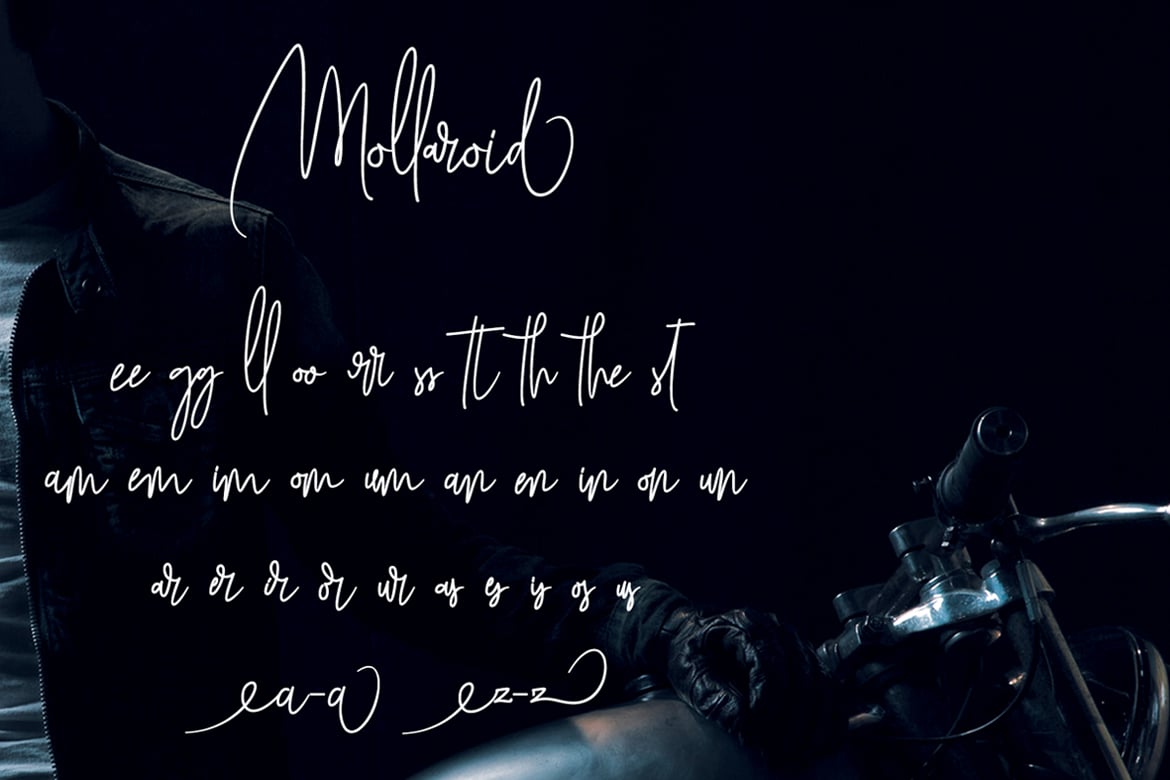 Mollaroid
ee gg ll oo rr ss tt th the st
am em im om um an en in on un
ar er ir or ur as es is os us
a-a z-z